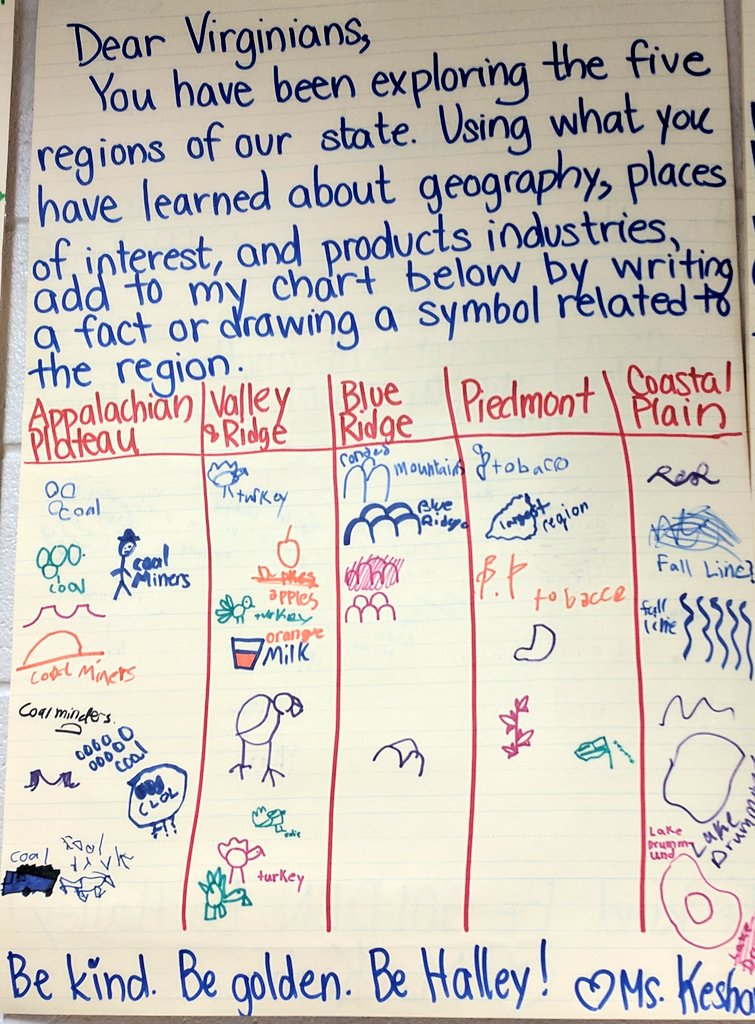 Dear Virginians,
You have been exploring the five
regions of our state. Using what you
have learned about geography, places
of interest, and products industries,
add to my chart below by writing
a fact or drawing a symbol related to
the region.
Appalachian
Plateau
coal
coal
coal
Miners
Coal Miners
Coal minders.
coal
coal
Valley
& Ridge
turkey
apples
turkey
orange
Milk
turkey
Blue
Ridge
mountains
Blue
Ridge
Piedmont
tobaco
largest region
tobacce
Coastal
Plain
Fall Line
fall
line
Lake
Drumm
und
Lake
Be kind. Be golden. Be Halley! ♡Ms. Kesha